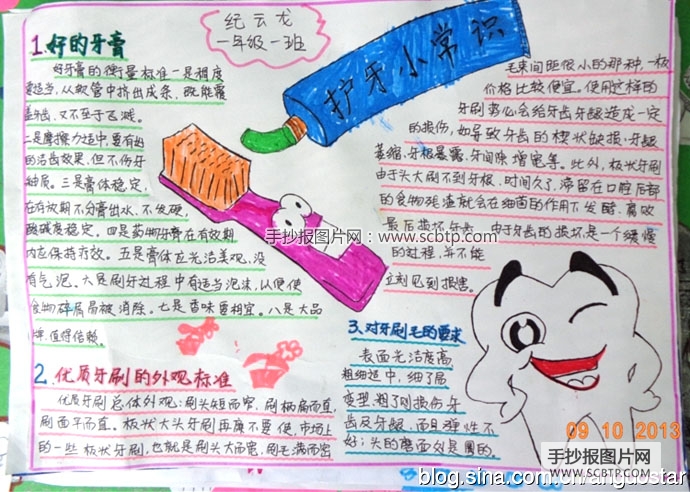 纪云龙
一年级一班
护牙小常识
1.好的牙膏
好牙膏的衡量标准一是稠度
要适当，从软管中挤出成条，既能覆
盖牙齿，又不至于飞溅。
二是摩擦力适中，要有好
的洁齿效果，但不伤牙
釉质。三是膏体稳定，
在存放期不分膏出水，不发硬，
酸碱度稳定。四是药物牙膏在有效期
内应保持疗效。五是膏体应光洁美观，没
有气泡。六是刷牙过程中有适当泡沫，以便使
食物碎屑易被清除。七是香味要相宜。八是大品
牌，值得信赖。
2.优质牙刷的外观标准
优质牙刷总体外观：刷头短而窄，刷柄扁而直，
刷面平而直。板状大头牙刷再廉不要使，市场上
的一些板状牙刷，也就是刷头大而宽，刷毛满而密
毛束间距很小的那种，一般
价格比较便宜。使用这样的
牙刷势必会给牙齿牙龈造成一定
的损伤，如导致牙齿的楔状缺损、牙龈
萎缩、牙根暴露、牙间隙增宽等。此外，板状牙刷
由于头大刷不到牙根，时间久了，滞留在口腔后部
的食物残渣就会在细菌的作用下发酵，腐败
最后损坏牙齿。由于牙齿的损坏是一个缓慢
的过程，并不能
立刻见到损害。
3、对牙刷毛的要求
表面光洁度高
粗细适中，细了易
变型，粗了则损伤牙
齿及牙龈，而且弹性不
好；头的磨面必是圆的。
手抄报图片网：www.scbtp.com
09 10 2013
手抄报图片网
WWW.SCBTP.COM
blog.sina.com.cn/angdostar